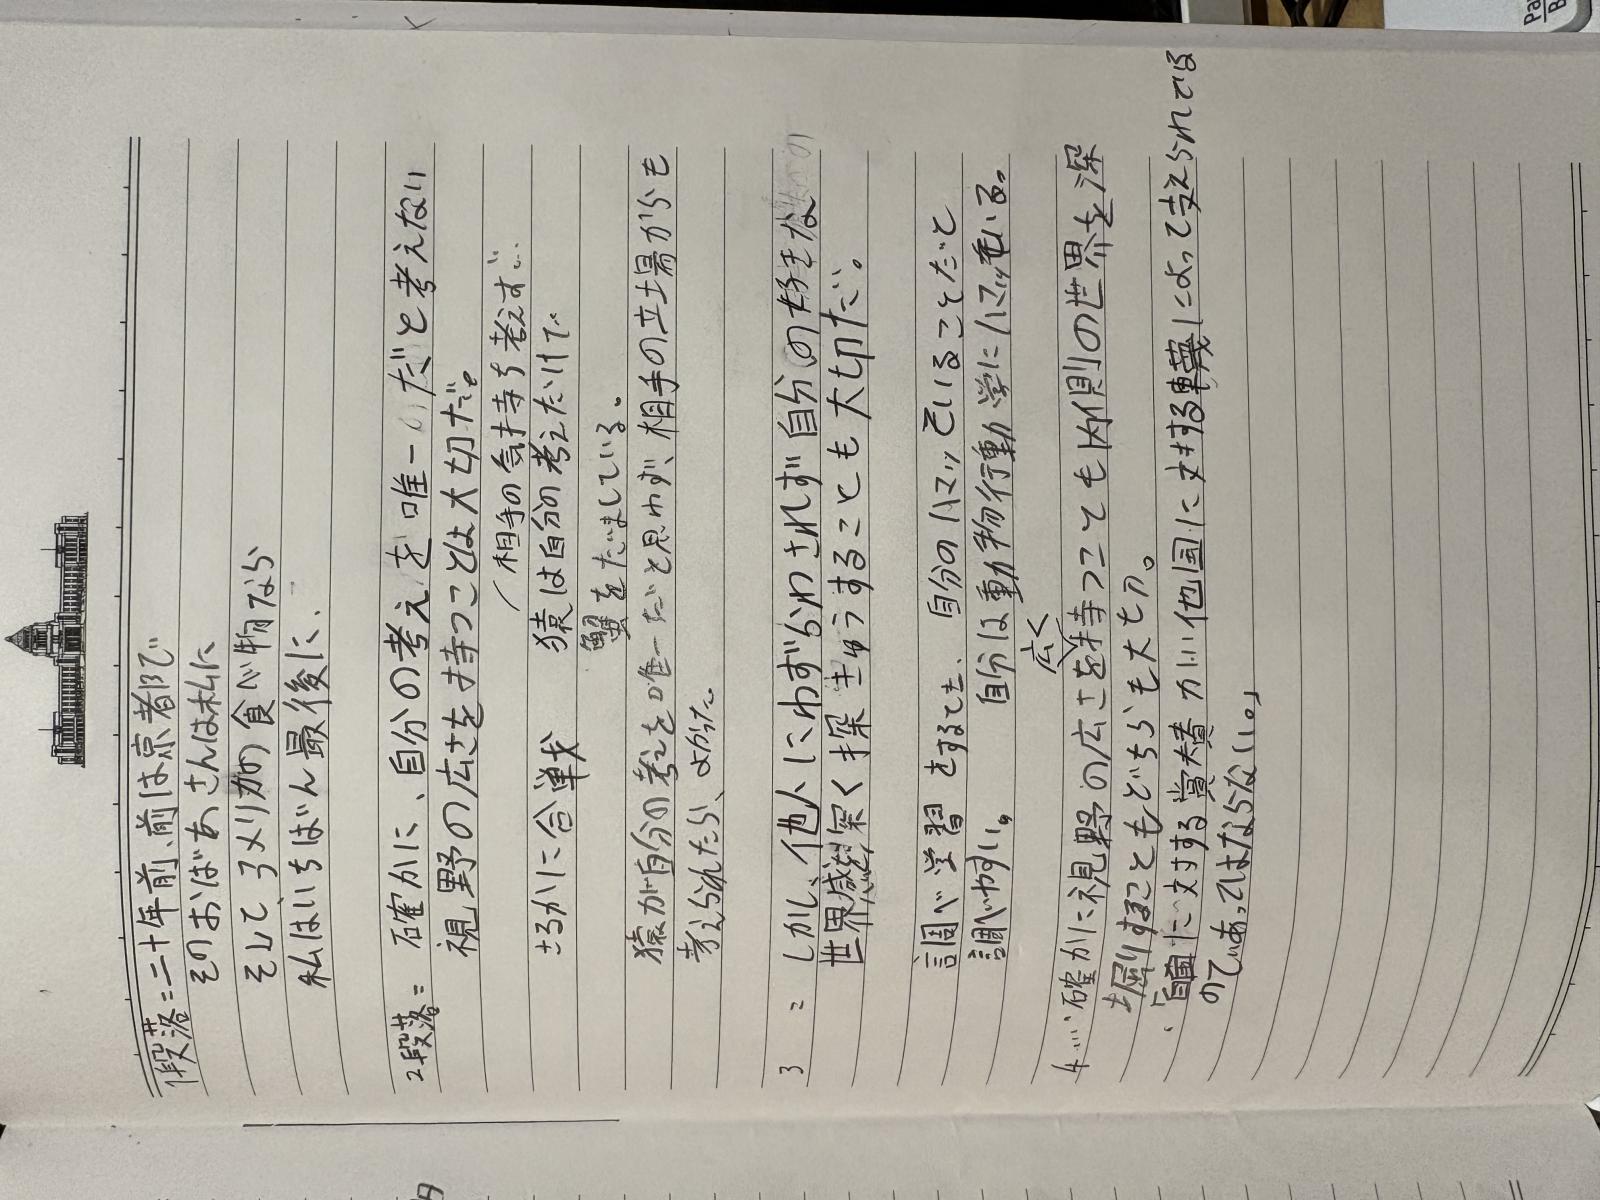 1段落=二十年前、前は京都で
そのおばあさんは私に
そしてアメリカの食べ物なら
私はいちばん最後に、
2段落= 確かに、自分の考えを唯一だと考えない
視野の広さを持つことは大切だ。
相手の気持ち考えず
さるかに合戦 猿は自分の考えだけで
蟹をだましている。
猿が自分の考えを唯一だと思わず、相手の立場からも
考えられたら、よかった
3 = しかし、他人にわずらわされず自分の好きな
世界感を深く探きゅうすることも大切だ。
調べ学習 をするとき、自分のハマッていることだと
調べやすい。 自分は動物行動学にハマッている。
広く
4… 確かに視野の広さを持つことも内側の世界を深
堀りすることもどちらも大切。
・「自国に対する賞賛が、他国に対する軽蔑によって支えられている
のであってはならない。」
Pa
B